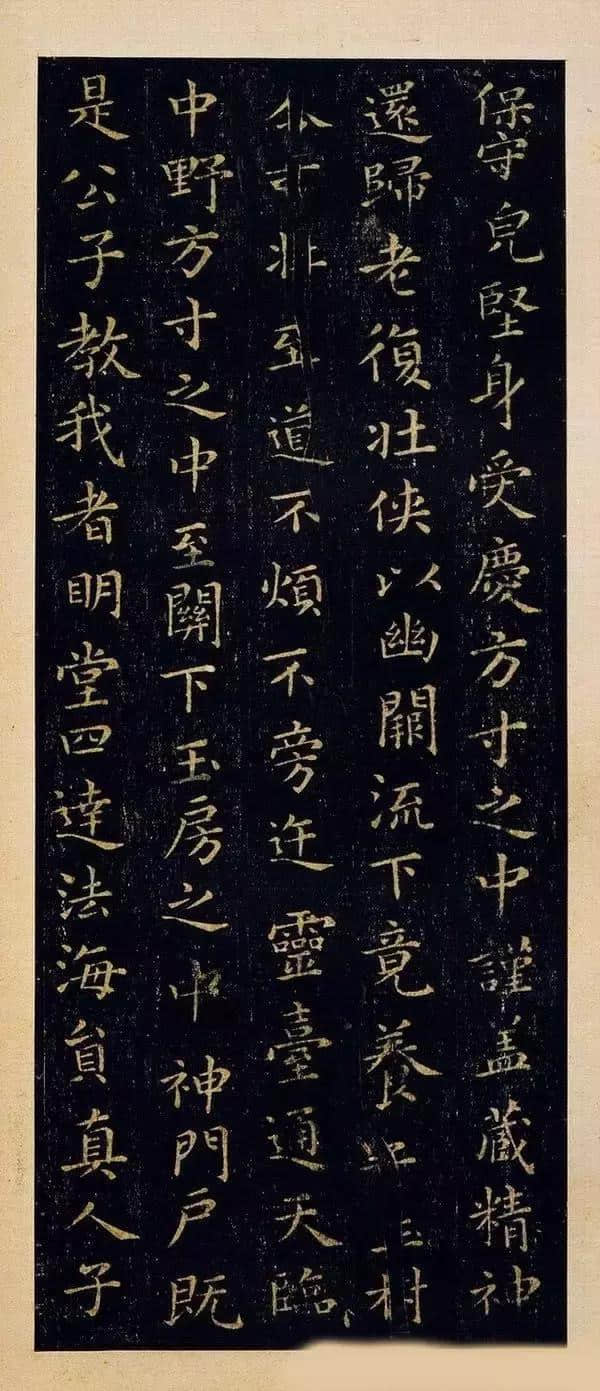 保守皃堅身受慶方寸之中謹盖藏精神
還歸老復壯俠以幽闕流下竟養
至道不煩不旁迕靈臺通天臨
中野方寸之中至關下玉房之中神門戶既
是公子教我者明堂四達法海貟真人子